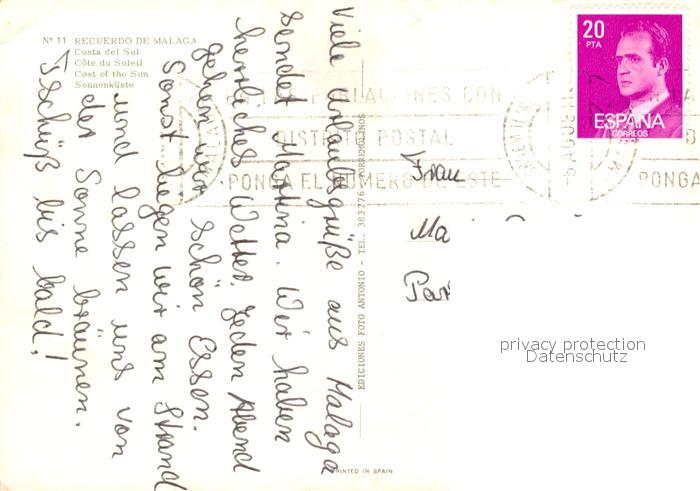 Nº 11 RECUERDO DE MALAGA
Costa del Sol
Côte du Soleil
Cost of the Sun
Sonnenküste
Viele Urlaubsgrüße aus Malaga
sendet Martina. Wir haben
herrliches Wetter. Jeden Abend
gehen wir schön Essen.
Sonst liegen wir am Strand
und lassen uns von
der Sonne bräunen.
Tschüß bis bald!
EDICIONES FOTO ANTONIO - TEL. 383276 - TORREMOLINOS
PRINTED IN SPAIN
20
PTA
ESPAÑA
CORREOS
POBLACIONES CON
DISTRITO POSTAL
PONGA EL NUMERO DE ESTE
PONGA
Frau
Ma
privacy protection
Datenschutz